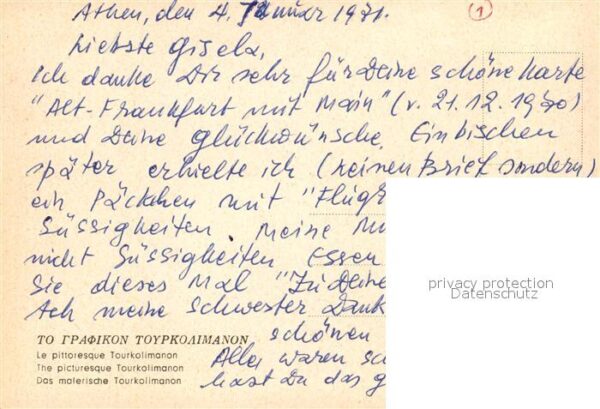 Athen, den 4. Januar 1971.
1
Liebste Gisela,
Ich danke Dir sehr für Deine schöne Karte
"Alt-Frankfurt mit Main" (v. 21.12.1970)
und Deine Glückwünsche. Ein bischen
später erhielte ich (keinen Brief sondern)
ein Päckchen mit "Flug
Süssigkeiten. Meine Mu
nicht Süssigkeiten Essen
Sie dieses Mal "Zu Deine
Ich meine Schwester Dank
schönen
Alles waren sc
hast Du das g
privacy protection
Datenschutz
ΤΟ ΓΡΑΦΙΚΟΝ ΤΟΥΡΚΟΛΙΜΑΝΟΝ
Le pittoresque Tourkolimanon
The picturesque Tourkolimanon
Das malerische Tourkolimanon